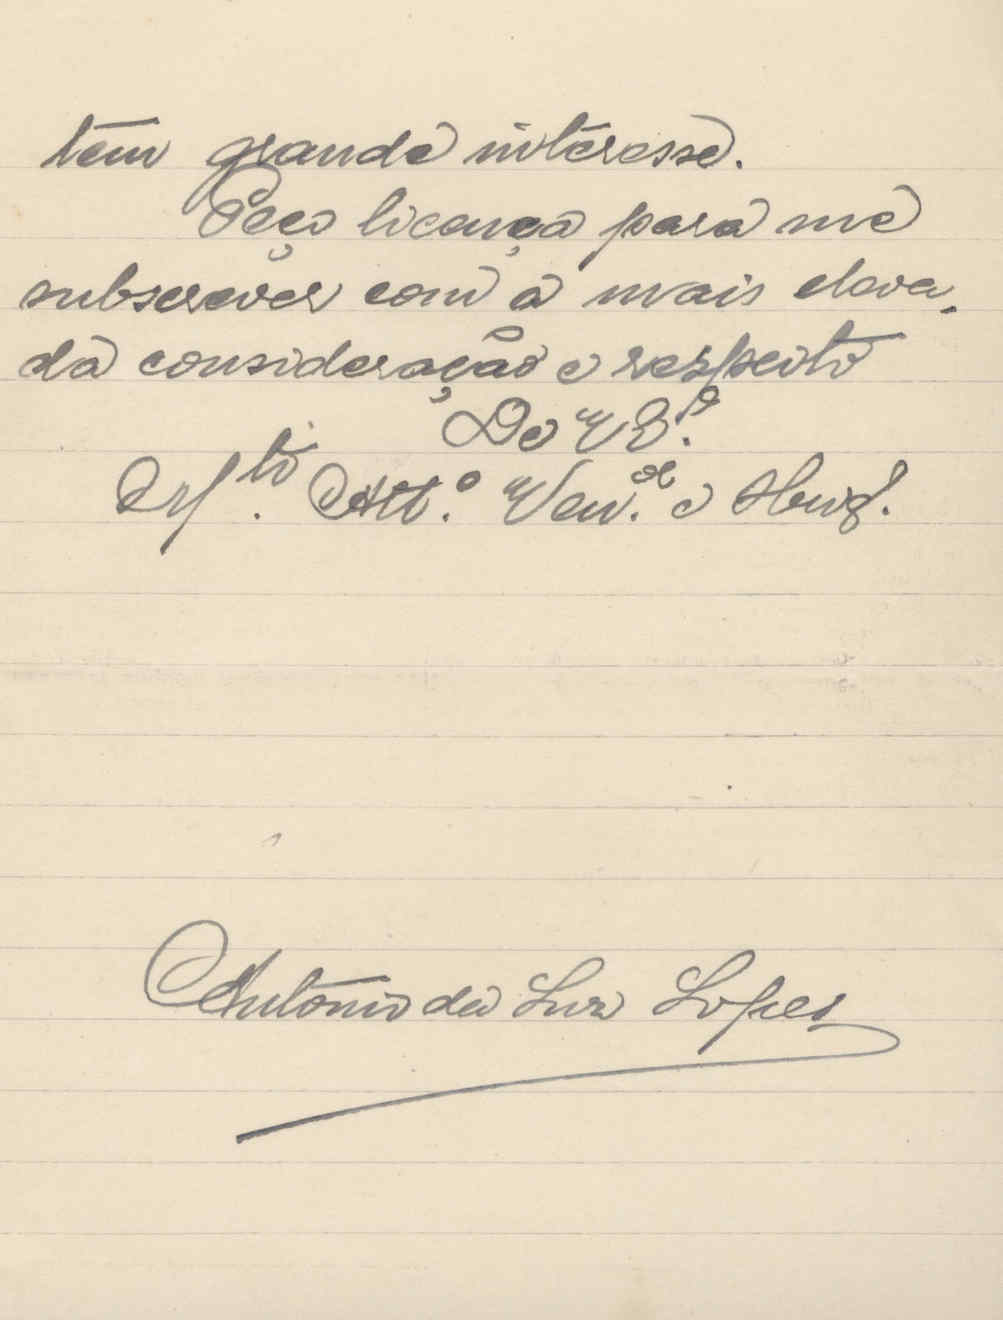 tem grande interesse.
Peço licença para me
subscrever com a mais eleva-
da consideração e respeito
De V. E.ª
M.to Att.º Ven.or e Obrig.
António da Luz Lopes